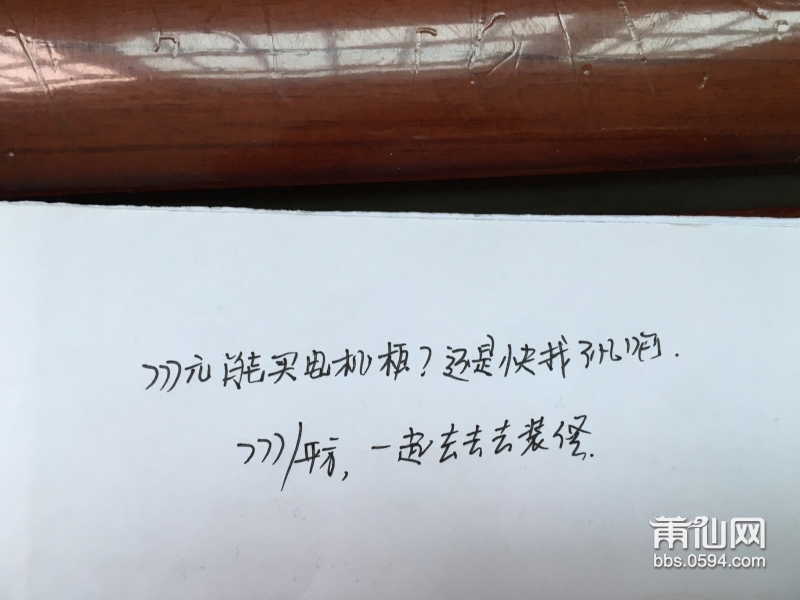 777元能买电机柜？还是快找几啊.
777/平方, 一起去去去装修.
莆仙网
bbs.0594.com